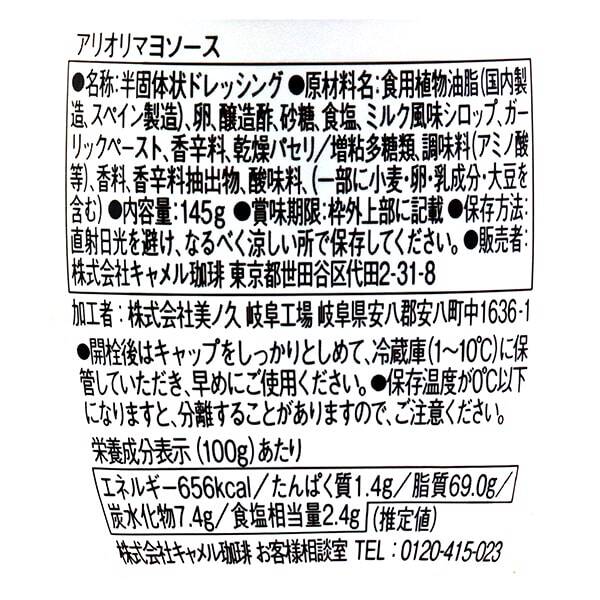 アリオリマヨソース
●名称:半固体状ドレッシング ●原材料名:食用植物油脂(国内製
造、スペイン製造)、卵、醸造酢、砂糖、食塩、ミルク風味シロップ、ガー
リックペースト、香辛料、乾燥パセリ/増粘多糖類、調味料(アミノ酸
等)、香料、香辛料抽出物、酸味料、(一部に小麦・卵・乳成分・大豆を
含む) ●内容量:145g ●賞味期限:枠外上部に記載 ●保存方法:
直射日光を避け、なるべく涼しい所で保存してください。●販売者:
株式会社キャメル珈琲 東京都世田谷区代田2-31-8
加工者:株式会社美ノ久 岐阜工場 岐阜県安八郡安八町中1636-1
●開栓後はキャップをしっかりとしめて、冷蔵庫(1~10℃)に保
管していただき、早めにご使用ください。●保存温度が0℃以下
になりますと、分離することがありますので、ご注意ください。
栄養成分表示(100g)あたり
エネルギー656kcal/たんぱく質1.4g/脂質69.0g/
炭水化物7.4g/食塩相当量2.4g (推定値)
株式会社キャメル珈琲 お客様相談室 TEL:0120-415-023